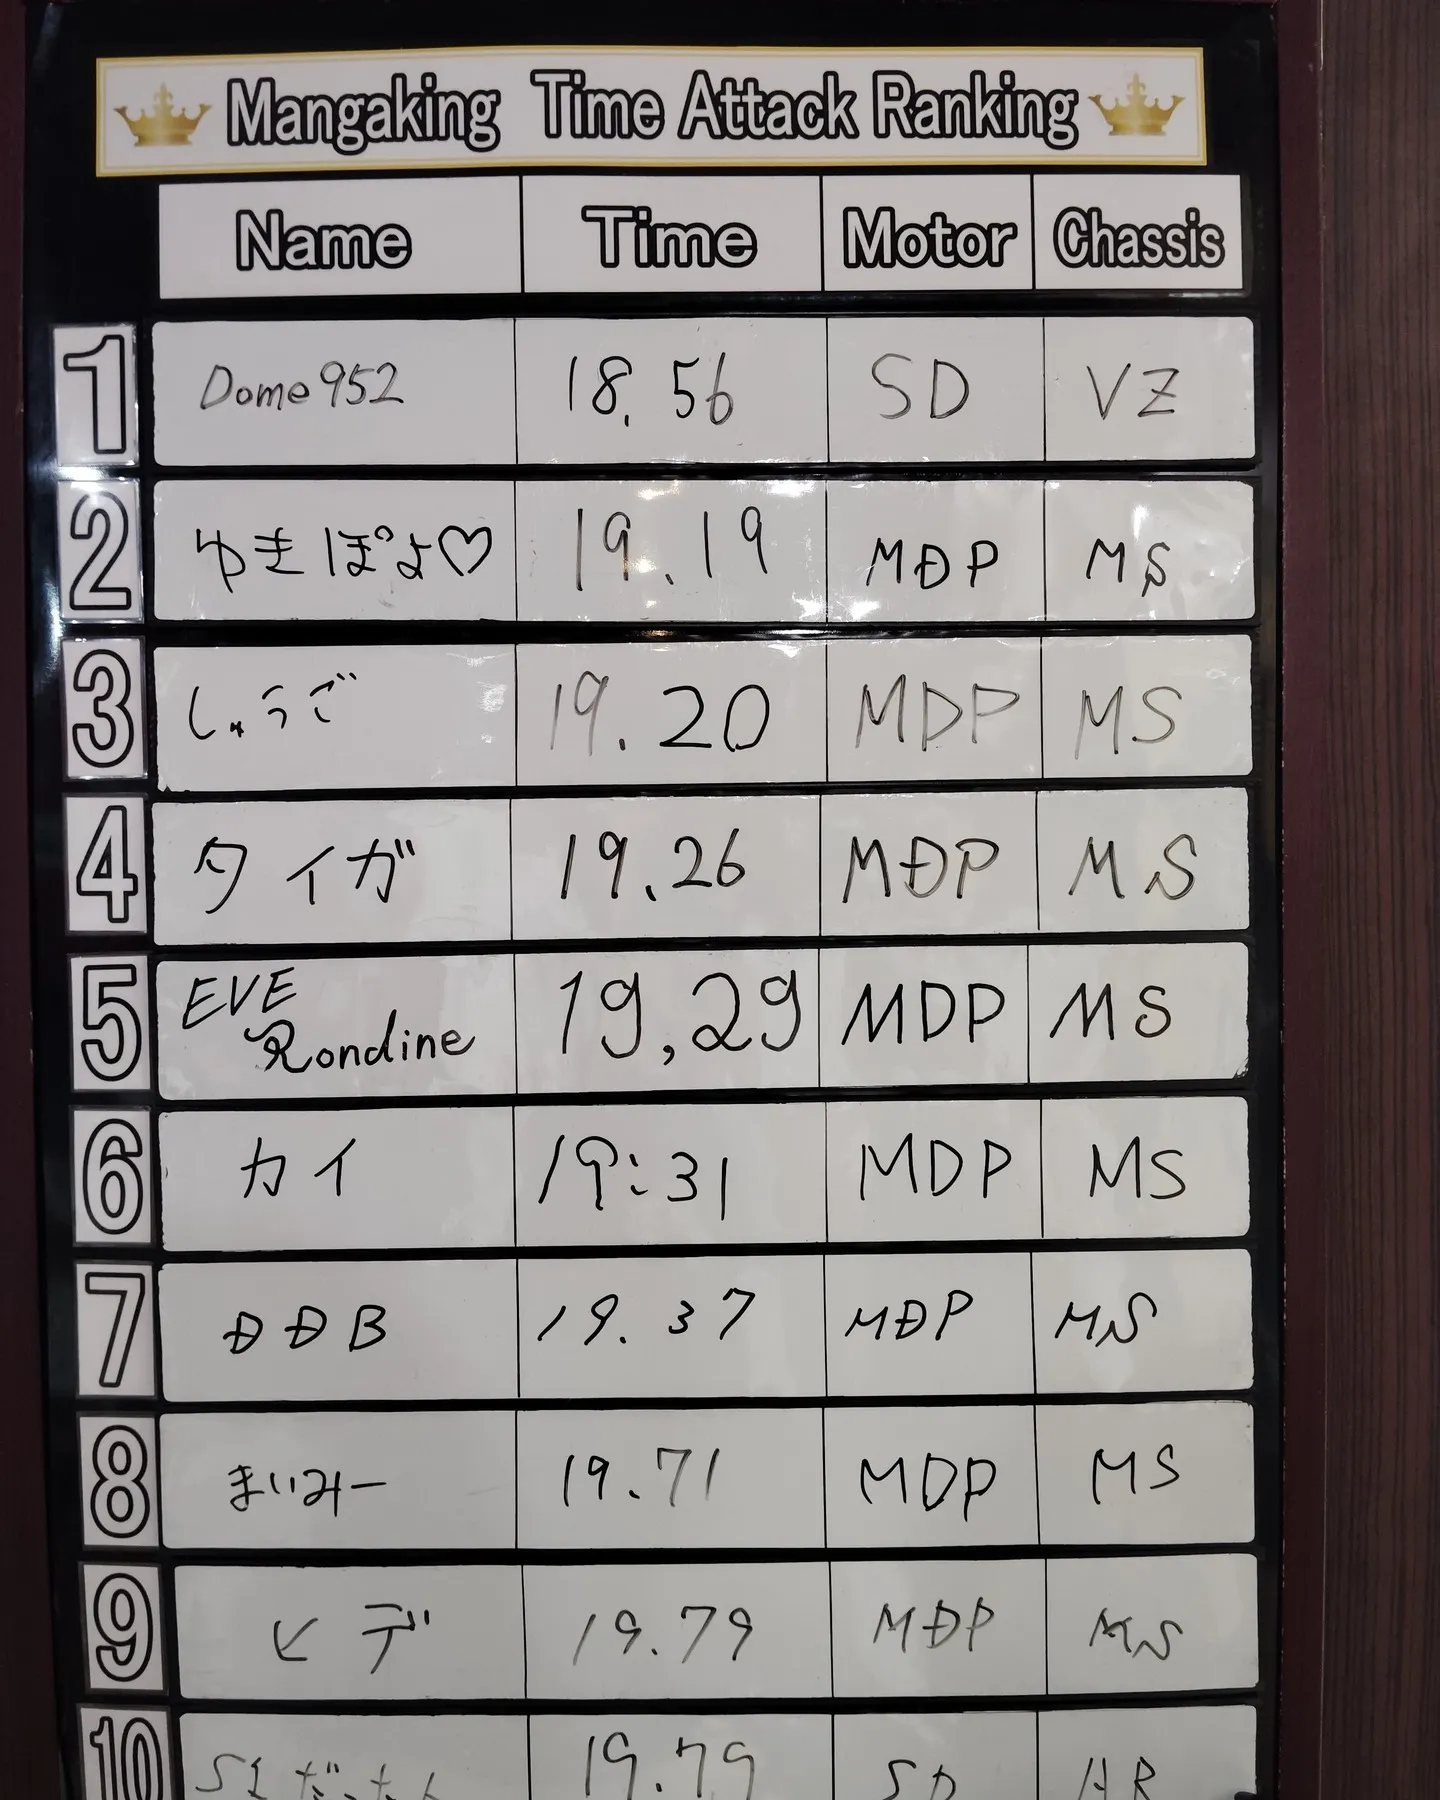 Mangaking Time Attack Ranking
Name Time Motor Chassis
1 Dome952 18.56 SD VZ
2 ゆきぽよ♡ 19.19 MDP MS
3 しゅうご 19.20 MDP MS
4 タイガ 19.26 MDP MS
5 EVE Rondine 19,29 MDP MS
6 カイ 19:31 MDP MS
7 DDB 19.37 MDP MS
8 まいみー 19.71 MDP MS
9 ヒデ 19.79 MDP MS
10 19.79 SD AR